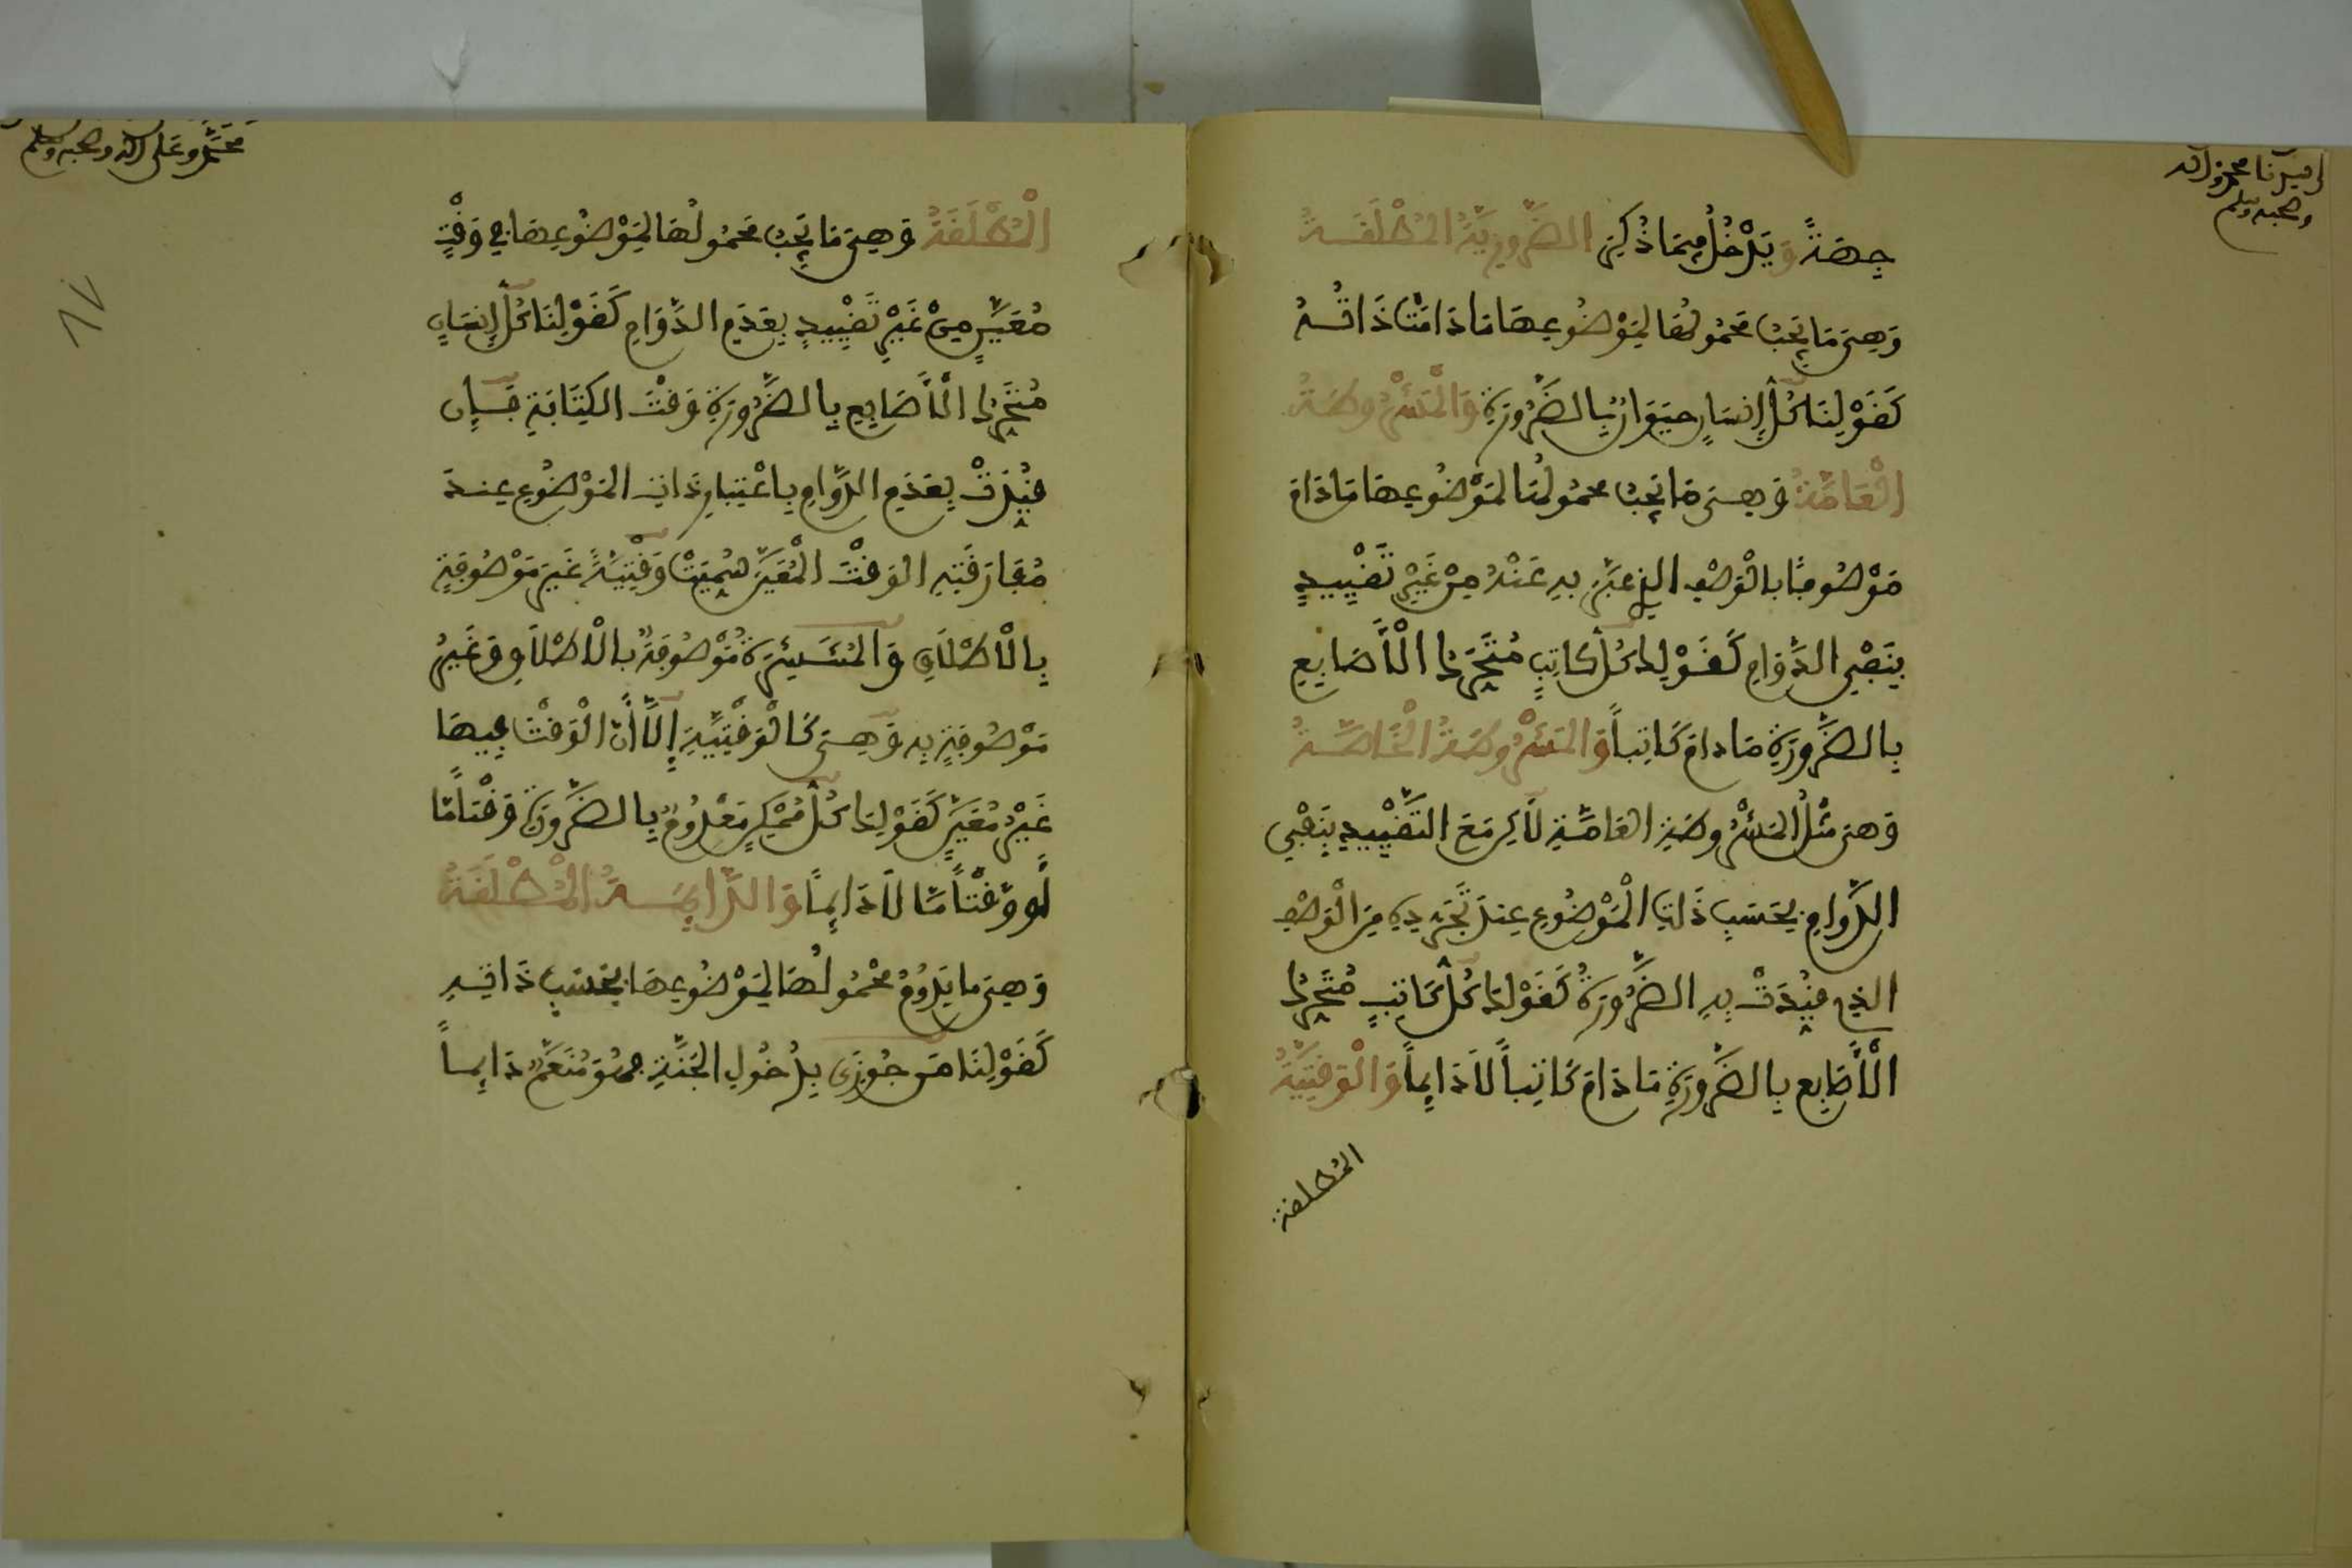 جِهَةً وَيَدْخُلُ فِيمَا ذُكِرَ الضَّرُورِيَّةُ المُطْلَقَةُ
وَهِيَ مَا يَجِبُ مَحْمُولُهَا لِمَوْضُوعِهَا مَا دَامَتْ ذَاتُهُ
كَقَوْلِنَا كُلُّ إِنسَانٍ حَيَوَانٌ بِالضَّرُورَةِ وَالْمَشْرُوطَةُ
الْعَامَّةُ وَهِيَ مَا يَجِبُ مَحْمُولُهَا لِمَوْضُوعِهَا مَا دَامَ
مَوْصُوفًا بِالْوَصْفِ الذِي عُبِّرَ بِهِ عَنْهُ مِنْ غَيْرِ تَقْيِيدٍ
بِنَفْيِ الدَّوَامِ كَقَوْلِنَا كُلُّ كَاتِبٍ مُتَحَرِّكُ الْأَصَابِعِ
بِالضَّرُورَةِ مَا دَامَ كَاتِباً وَالمَشْرُوطَةُ الْخَاصَّةُ
وَهِيَ مِثْلُ المَشْرُوطَةِ العَامَّةِ لَاكِن مَعَ التَّقْيِيدِ بِنَفْيِ
الدَّوَامِ بِحَسَبِ ذَاتِ الْمَوْضُوعِ عِندَ تَجَرُّدِهِ مِنَ الْوَصْفِ
الذِي قُيِّدَتْ بِهِ الضَّرُورَةُ كَقَوْلِنَا كُلُّ كَاتِبٍ مُتَحَرِّكُ
الْأَصَابِعِ بِالضَّرُورَةِ مَا دَامَ كَاتِباً لَا دَائِماً وَالْوَقْتِيَّةُ
المُطلقة
الْمُطْلَقَةُ وَهِيَ مَا يَجِبُ مَحْمُولُهَا لِمَوْضُوعِهَا فِي وَقْتٍ
مُعَيَّنٍ مِنْ غَيْرِ تَقْيِيدٍ بِعَدَمِ الدَّوَامِ كَقَوْلِنَا كُلُّ إِنسَانٍ
مُتَحَرِّكُ الْأَصَابِعِ بِالضَّرُورَةِ وَقْتَ الكِتَابَةِ فَإِن
قُيِّدَتْ بِعَدَمِ الدَّوَامِ بِاعْتِبَارِ ذَاتِ المَوْضُوعِ عِندَ
مُفَارَقَتِهِ الوَقْتَ الْمُعَيَّنَ سُمِّيَتْ وَقْتِيَّةً غَيْرَ مَوْصُوفَةٍ
بِالْإِطْلَاقِ وَالمُنْتَشِرَةُ مَوْصُوفَةٌ بِالْإِطْلَاقِ وَغَيْرُ
مَوْصُوفَةٍ بِهِ وَهِيَ كَالْوَقْتِيَّةِ إِلَّا أَنَّ الْوَقْتَ فِيهَا
غَيْرُ مُعَيَّنٍ كَقَوْلِنَا كُلُّ مُمْكِنٍ مَعْدُومٌ بِالضَّرُورَةِ وَقْتاً مَّا
أَو وَقْتاً مَّا لَا دَائِماً وَالدَّائِمَةُ الْمُطْلَقَةُ
وَهِيَ مَا يَدُومُ مَحْمُولُهَا لِمَوْضُوعِهَا بِحَسَبِ ذَاتِهِ
كَقَوْلِنَا مَن جُوزِيَ بِدُخُولِ الجَنَّةِ فَهُوَ مُنَعَّمٌ دَائِماً
محمد وعلى آله وصحبه وسلم